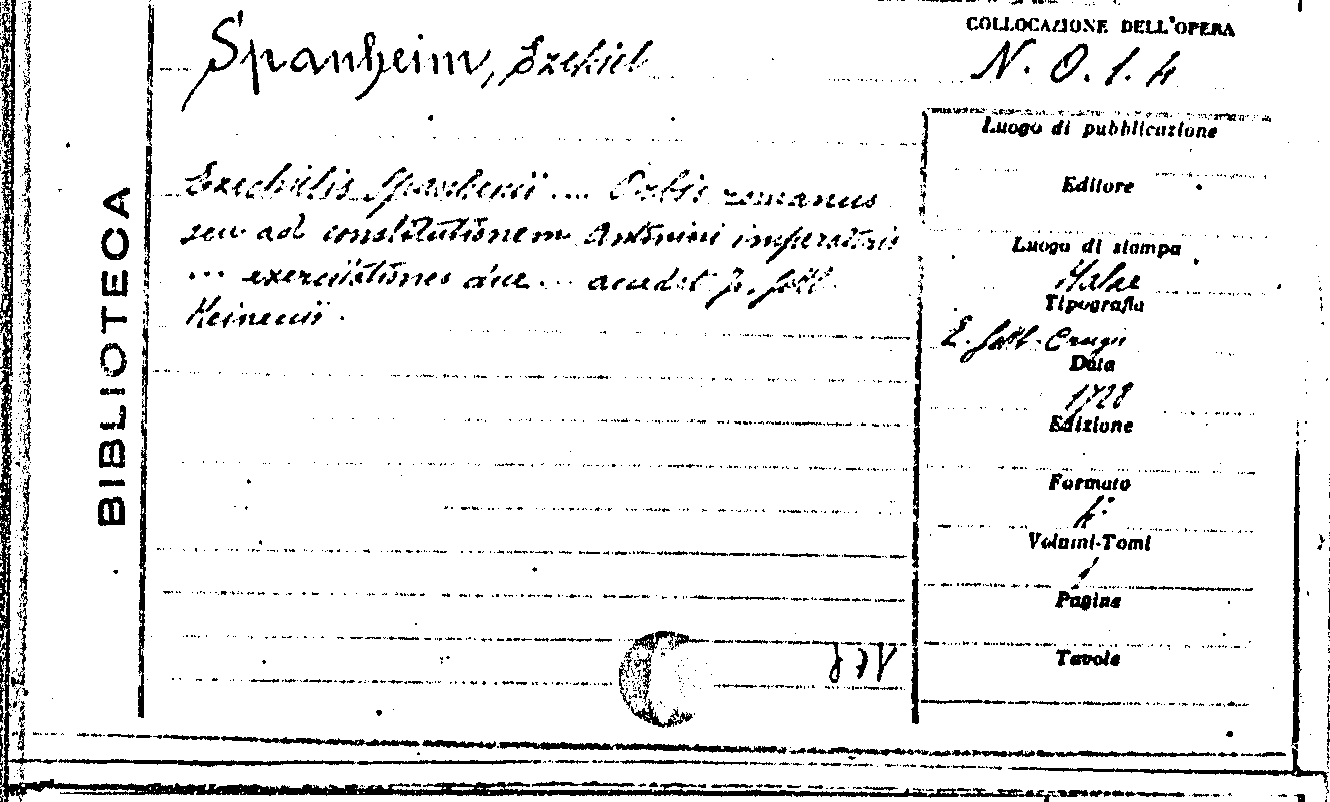 COLLOCAZIONE DELL'OPERA
Spanheim, Ezekiel
N. O. 1. 4
BIBLIOTECA
Ezechielis Spanhemii ... Orbis romanus
seu ad constitutionem Antonini imperatoris
... exercitationes duae ... accedit Jo. Gottl.
Heineccii.
Luogo di pubblicazione
Editore
Luogo di stampa
Halae
Tipografia
Gottl. Crugii
Data
1728
Edizione
Formato
4°
Volumi-Tomi
1
Pagine
Tavole